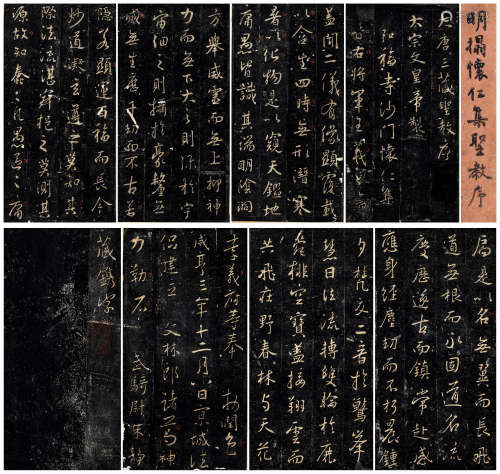 明搨懷仁集聖教序
大唐三藏聖教序
太宗文皇帝製
弘福寺沙門懷仁集
晉右將軍王羲之書
蓋聞二儀有像顯覆載
以含生四時無形潛寒
暑以化物是以窺天鑑地
庸愚皆識其端明陰洞
方舉威靈而無上抑神
力而無下大之則彌於宇
宙細之則攝於豪釐無
滅無生歷千劫而不古若
隱若顯運百福而長今
妙道凝玄遵之莫知其
際法流湛寂挹之莫測其
源故知蠢蠢凡愚區區庸
扃是以名無翼而長飛
道無根而永固道名流
慶歷遂古而鎮常赴感
應身經塵劫而不朽晨鐘
夕梵交二音於鷲峯
慧日法流轉雙輪於鹿
菀排空寶蓋接翔雲而
共飛莊野春林與天花
李義府等奉 敕潤色
咸亨三年十二月八日京城法
侶建立 文林郎諸葛神
力勒石 武騎尉朱靜
藏鐫字